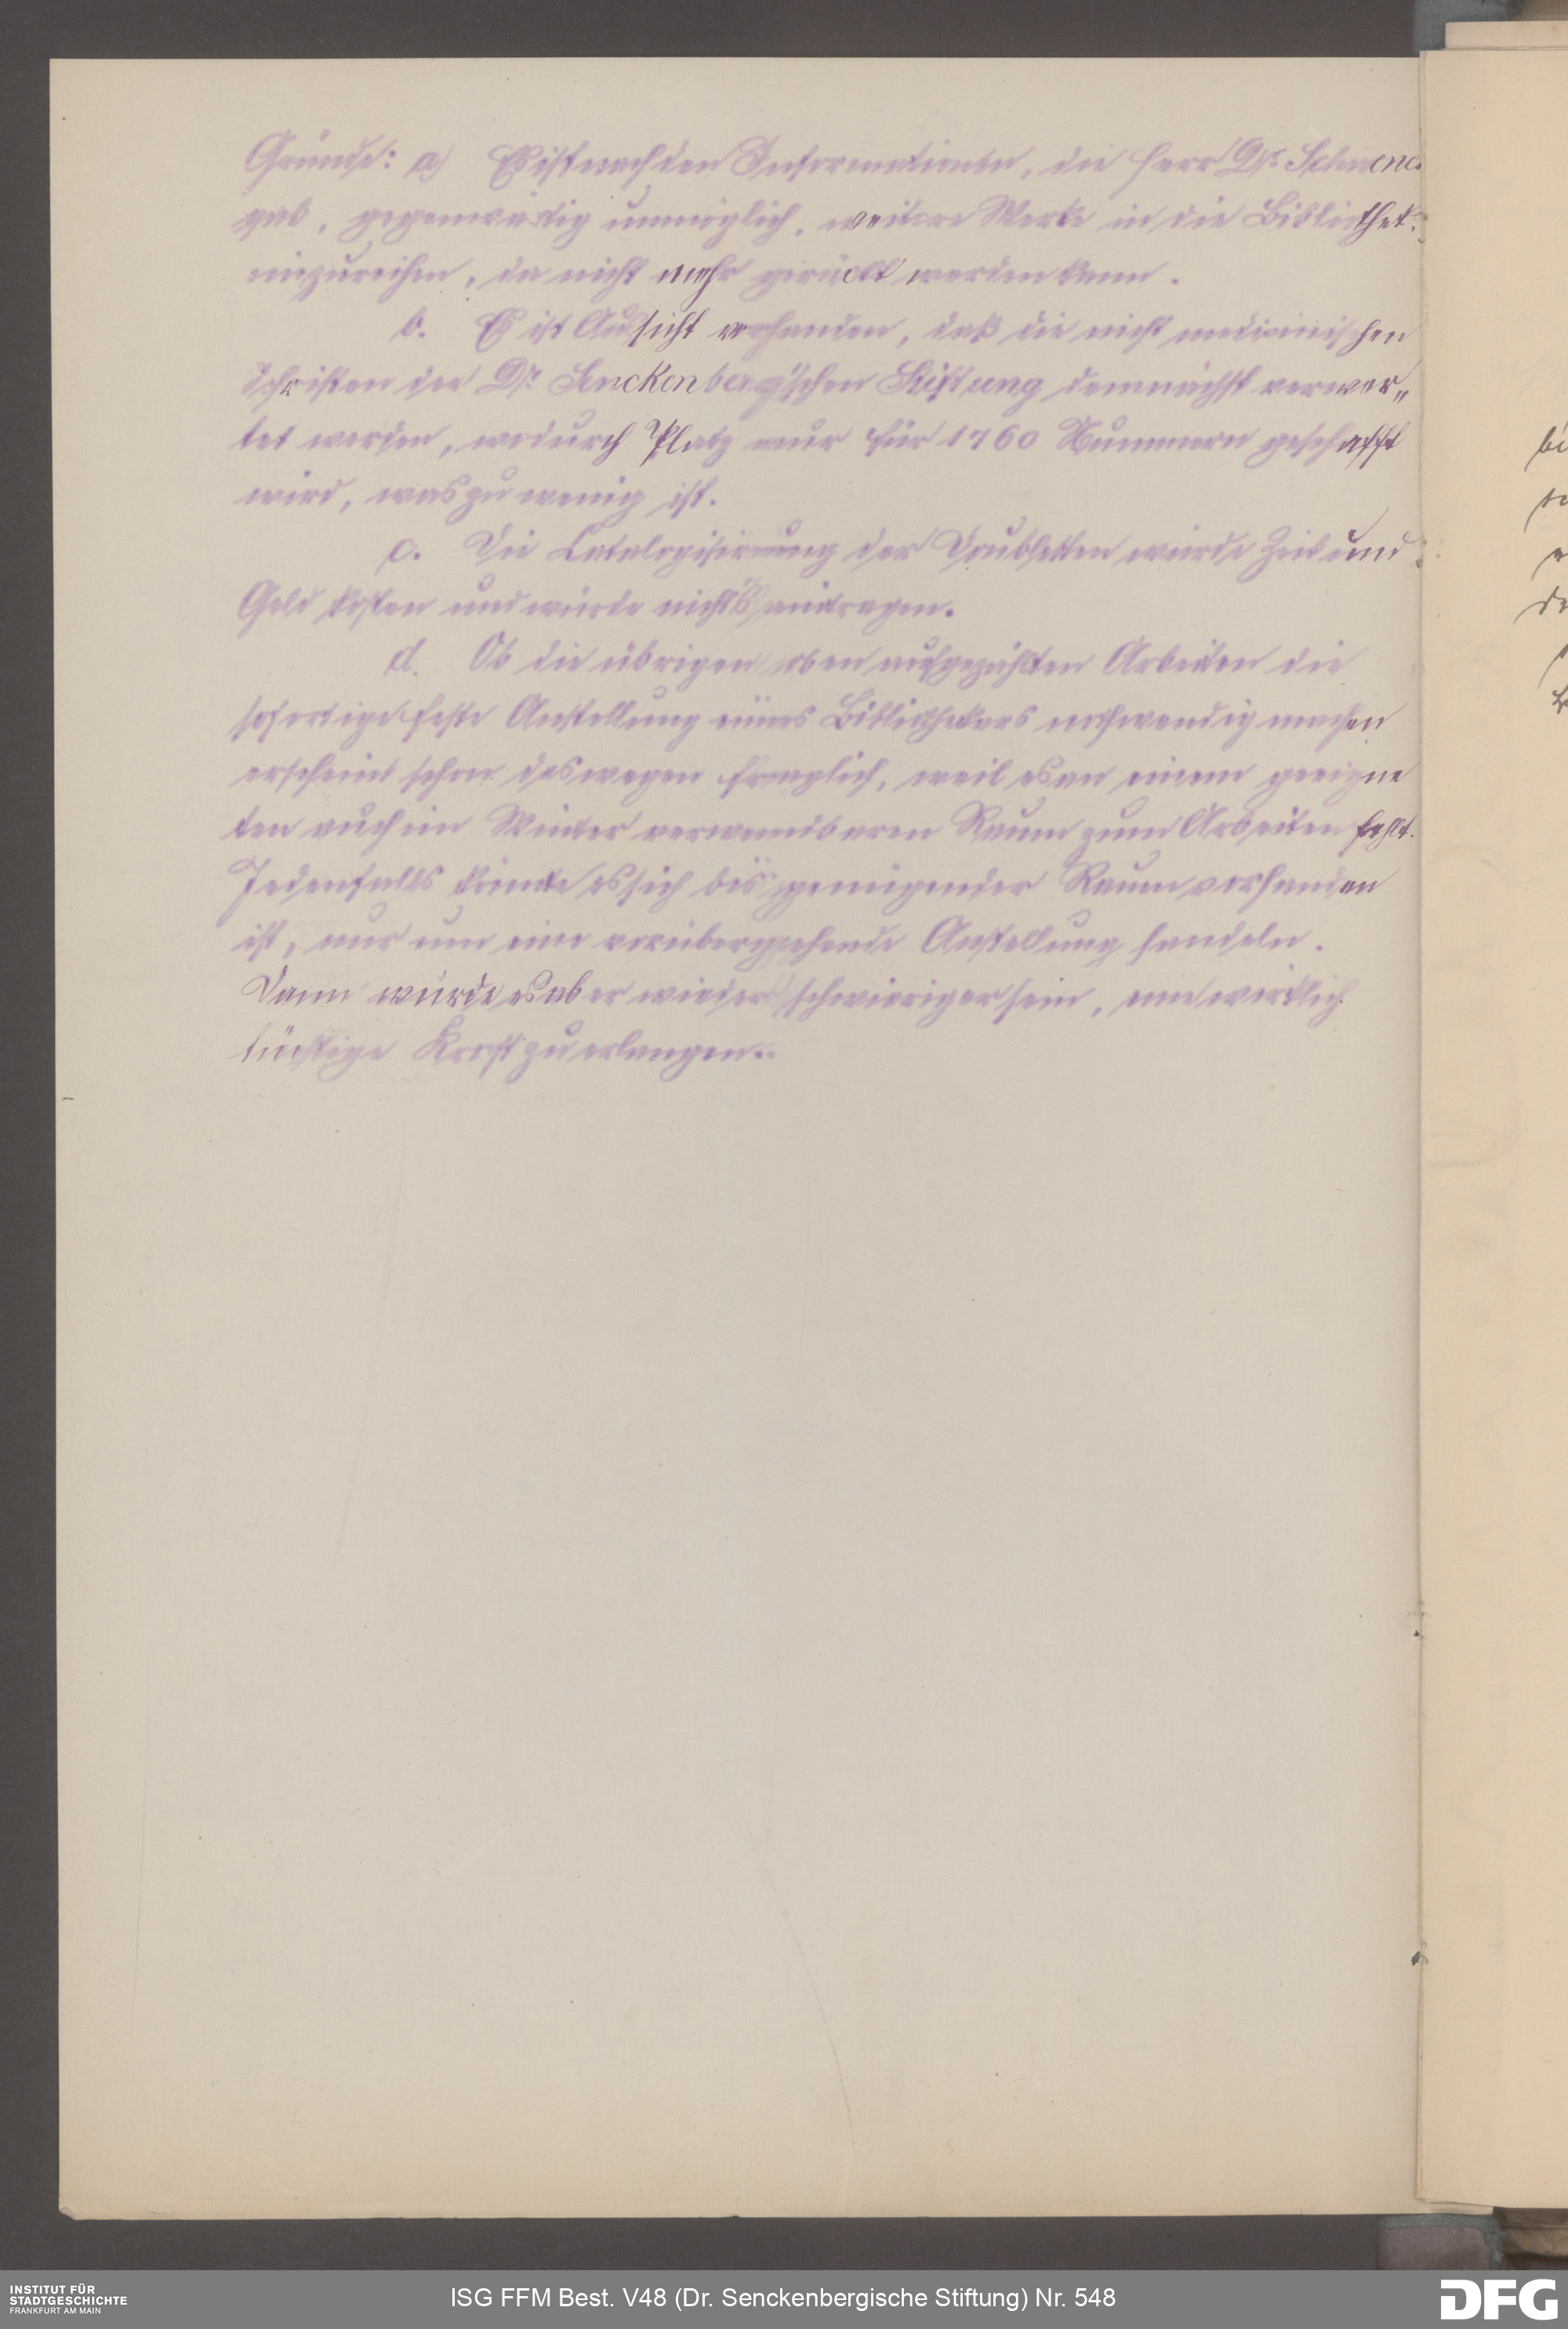 Gründe: a) Es ist nach den Informationen, die Herr Dr. Schwenc
gab, gegenwärtig unmöglich, weitere Werke in die Bibliothek
einzureihen, da nicht mehr gerückt werden kann.
b. Es ist Aussicht vorhanden, daß die nicht medicinischen
Schriften der Dr. Senckenberg'schen Stiftung demnächst verwer„
tet werden, wodurch Platz nur für 1760 Nummern geschafft
wird, was zu wenig ist.
c. Die Catalogisirung der Doubletten würde Zeit und
Geld kosten und würde nichts eintragen.
d. Ob die übrigen oben aufgezählten Arbeiten die
sofortige feste Anstellung eines Bibliothekars nothwendig machen
erscheint schon deswegen fraglich, weil es an einem geeigne
ten auch im Winter verwendbaren Raum zum Arbeiten fehlt.
Jedenfalls könnte es sich bis genügender Raum vorhanden
ist, nur um eine vorübergehende Anstellung handeln.
Dann würde es aber wieder schwieriger sein, eine wirklich
tüchtige Kraft zu erlangen.
INSTITUT FÜR
STADTGESCHICHTE
FRANKFURT AM MAIN
ISG FFM Best. V48 (Dr. Senckenbergische Stiftung) Nr. 548
DFG